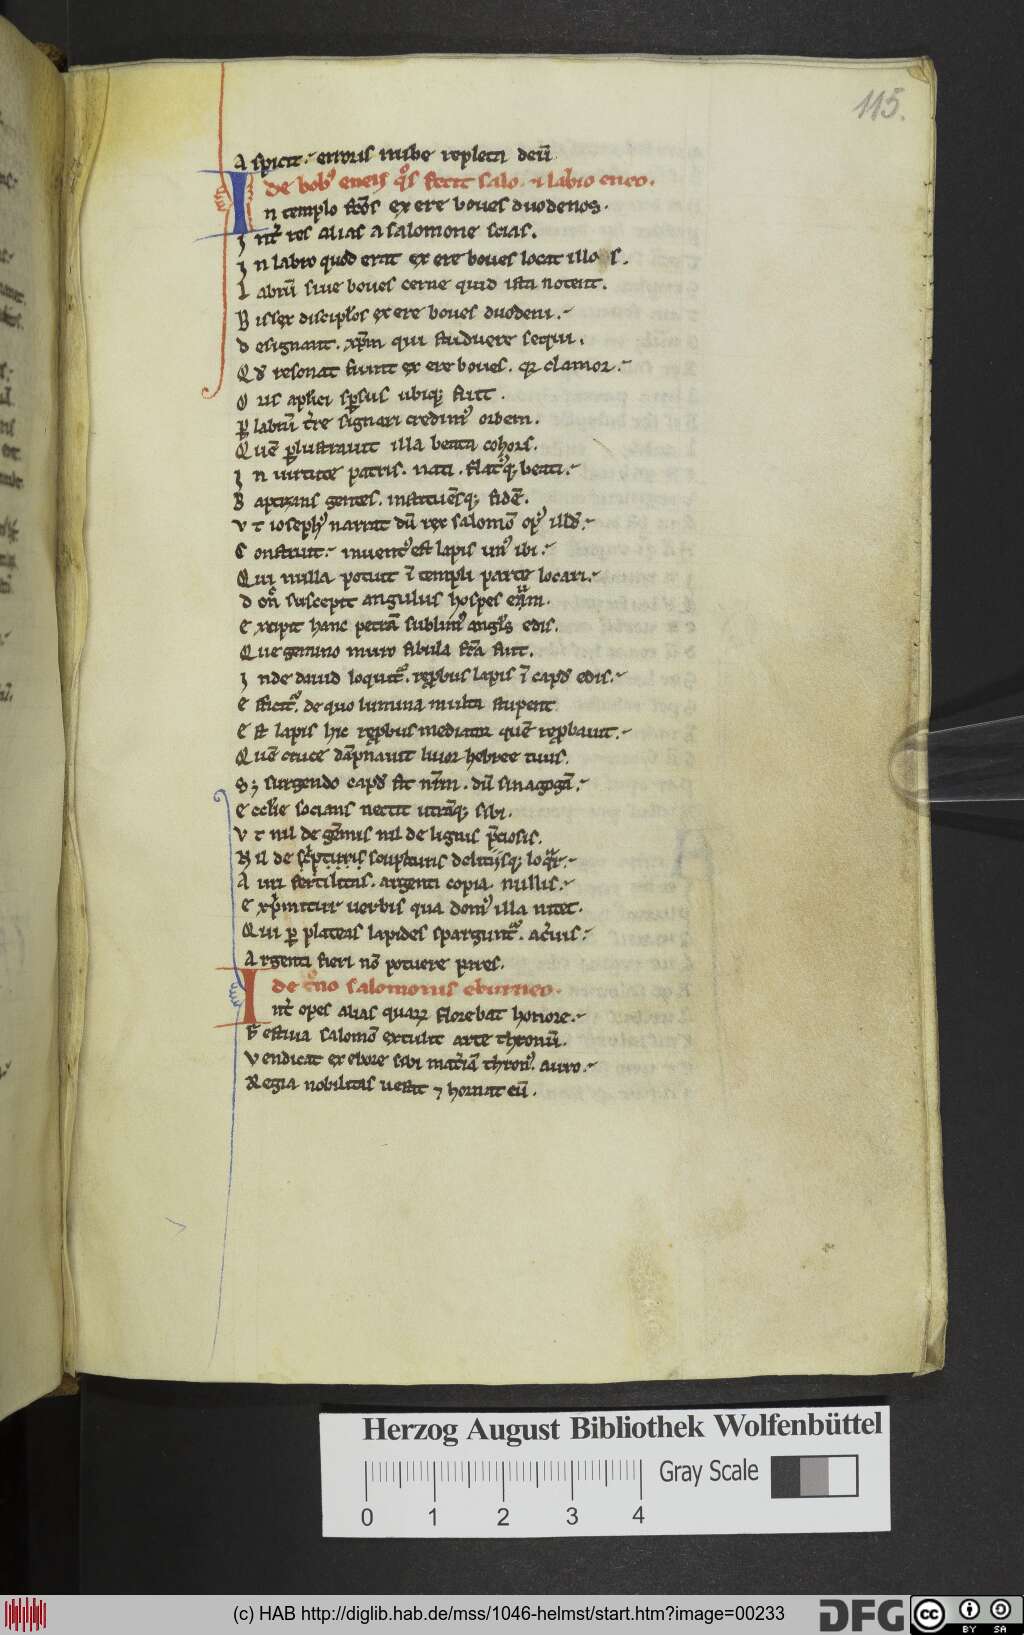 115.
Aspicit erroris nube repleta deũ
de bobꝰ eneis qͦs fecit salo. ⁊ labio eneo.
In templo fc̃os ex ere boues duodenos.
Int̉ res alias a salomone scias.
In labro quod erat ex ere boues locat illos.
Labrũ siue boues cerne quid ista notent.
Bissex discipl̃os ex ere boues duodeni.
designant. xp̃m qui studuere sequi.
Qd̓ resonat fuint ex ere boues. qꝛ clamor.
Ouis apl̃ici sꝑsus ubiqꝫ fuit.
ꝑ labrũ t̉re signari credimꝰ orbem.
Quẽ ꝑlustrauit illa beata cohors.
In uirtute patris. nati. flatꝰqꝫ beati.
Baptizans gentes. instituẽsqꝫ fidẽ.
Vt iosephꝰ narrat dũ rex salomõ opꝰ illd̓.
Construit. inuentꝰ est lapis unꝰ ibi.
Qui nulla potuit ĩ templi parte locari.
donͨ suscepit angulus hospes eũ.
Excipit hanc petrã sublimꝰ angl̓s edis.
Que gemino muro fibula fc̃a fuit.
Inde dauid loquitᷣ. reꝓbus lapis ĩ capd̓ edis.
Efficitᷣ. de quo lumina multa stupent
Est lapis hic reꝓbus mediator quẽ reꝓbauit.
Quẽ cruce dãpnauit liuor hebree tuus.
Sꝫ surgendo capd̓ fit nr̃m. dũ sinagogã.
Eccl̓ie socians nectit utrãqꝫ sibi.
Vt nil de gẽmis nil de lignis p̃ciosis.
Nil de sc̓pturis sculpturis delitiisqꝫ loqᷓr.
Auri fertilitas. argenti copia nullis.
Exp̓mitur uerbis qua domꝰ illa nitet.
Qui ꝑ plateas lapides sparguntᷣ. ac̉uis.
Argenti fieri nõ potuere pares.
de tͦno salomonis eburneo.
Int̉ opes alias quaꝝ florebat honore.
Festiua salomõ extulit arte thronũ.
Vendicat ex ebore sibi mat̉iã thronꝰ. auro.
Regia nobilitas uestit ⁊ hornat eũ.
Herzog August Bibliothek Wolfenbüttel
Gray Scale
0 1 2 3 4
(c) HAB http://diglib.hab.de/mss/1046-helmst/start.htm?image=00233
DFG
cc BY SA